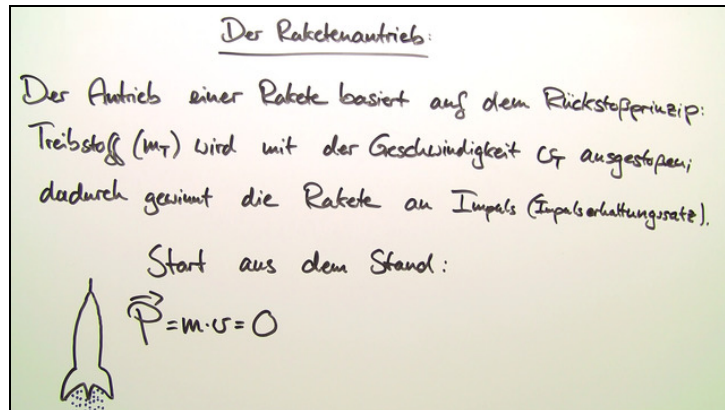 Der Raketenantrieb:
Der Antrieb einer Rakete basiert auf dem Rückstoßprinzip:
Treibstoff (m_T) wird mit der Geschwindigkeit v_T ausgestoßen;
dadurch gewinnt die Rakete an Impuls (Impulserhaltungssatz).
Start aus dem Stand:
P⃗ = m·v = 0